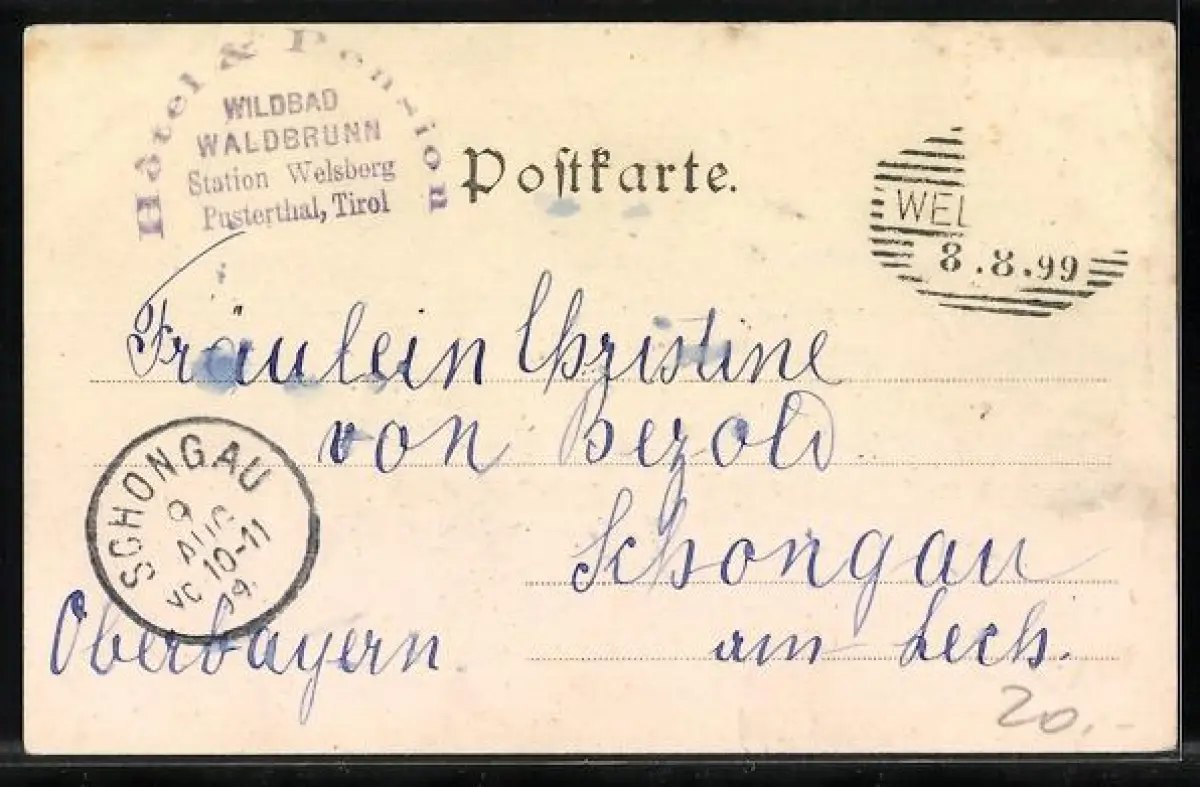 Hôtel & Pension
WILDBAD
WALDBRUNN
Station Welsberg
Pusterthal, Tirol
Postkarte.
WEL
8.8.99
Fräulein Christine
von Bezold
Schongau
am Lech.
Oberbayern.
SCHONGAU
9
AUG
VO 10-11
99.
20.-